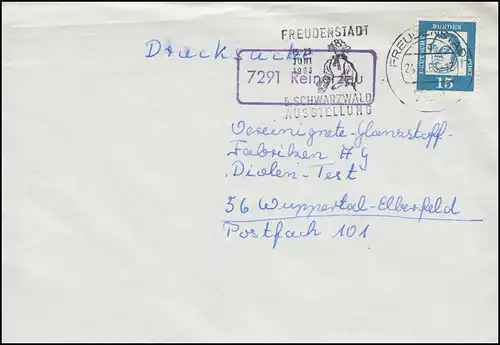 FREUDENSTADT
Drucksache
JUNI
1963
7291 Reinerzau
5. SCHWARZWALD
AUSSTELLUNG
FREUDENSTADT
BUNDES
POST
15
Vereinignete-Glanzstoff-
Fabriken AG
Diolen-Test
56 Wuppertal-Elberfeld
Postfach 101